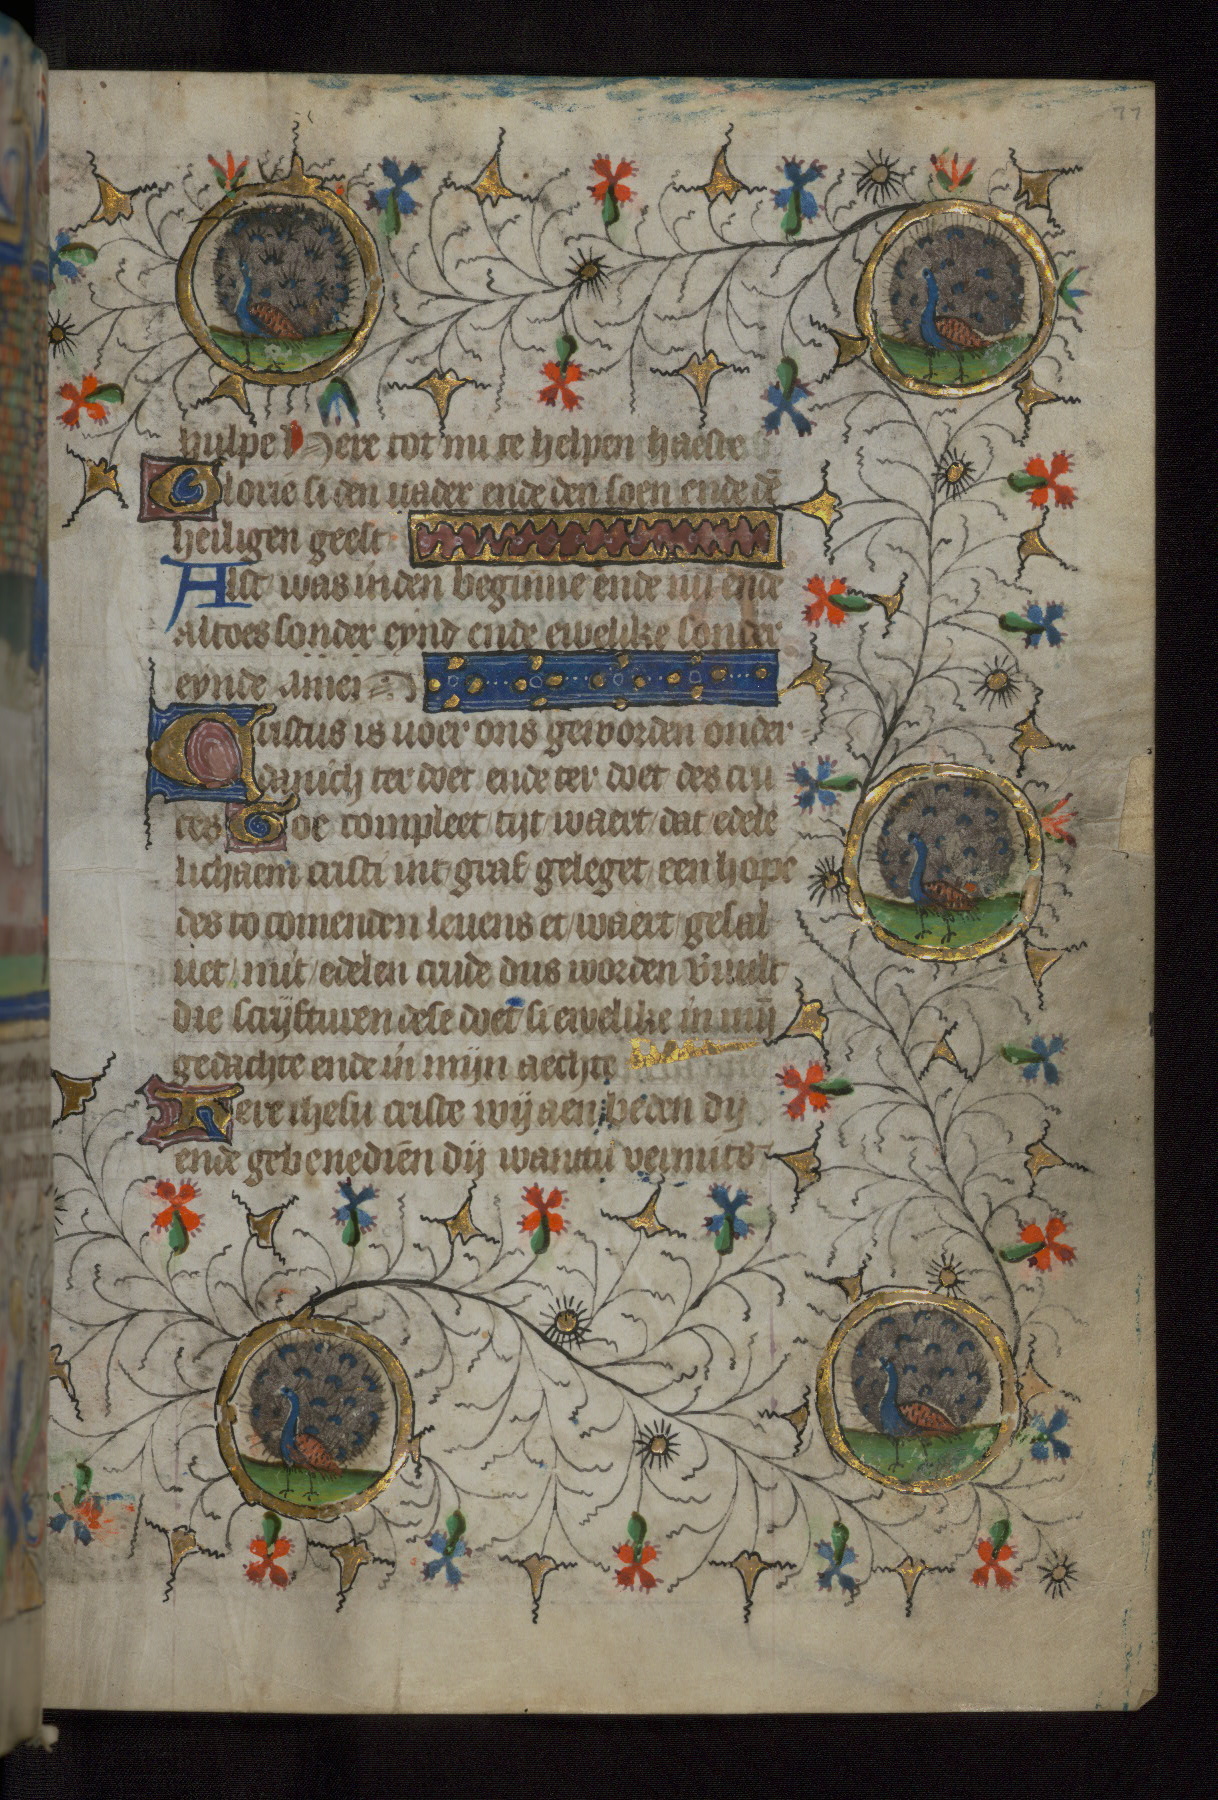 77
hulpe Here tot mi te helpen haeste
Glorie si den uader ende den soen ende dē
heiligen geest
Alst was inden beginne ende nu ende
altoes sonder eynd ende ewelike sonder
eynde Amen
Cristus is uoer ons geworden onder
danich ter doet ende ter doet des cru
ces Toe compleet tijt waert dat edele
lichaem cristi int graf geleget een hope
des to comenden leuens et waert gesal
uet mit edelen crude dus worden vuult
die scrifturen dese doet si ewelike in mijn
gedachte ende in mijn aechte
Here ihesu criste wij aen beden dij
ende gebenediēn dij wanttu vermits